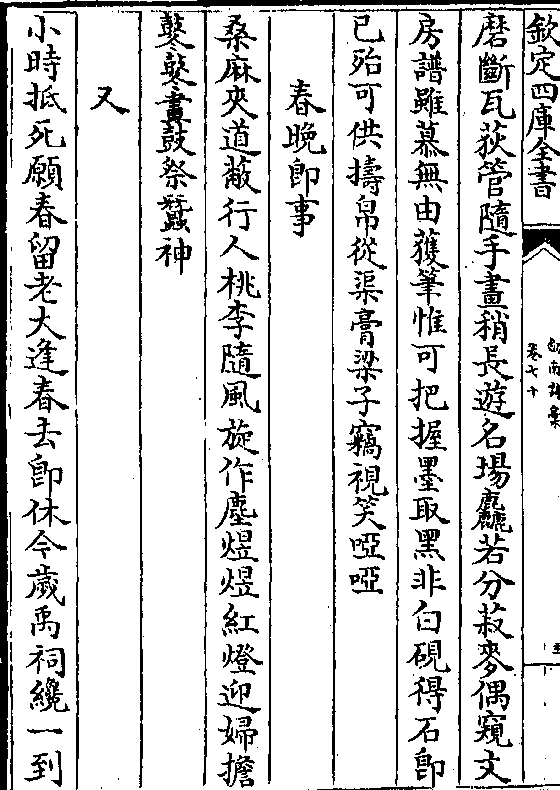 欽定四庫全書
劍南詩稾
卷七十
磨斷瓦荻管隨手畫稍長遊名場麤若分菽麥偶窺文
房譜雖慕無由獲筆惟可把握墨取黑非白硯得石即
已殆可供擣帛從渠膏粱子竊視笑啞啞
春晚即事
桑麻夾道蔽行人桃李隨風旋作塵煜煜紅燈迎婦擔
鼕鼕畫鼓祭蠶神
又
小時抵死願春留老大逢春去即休今歲禹祠纔一到